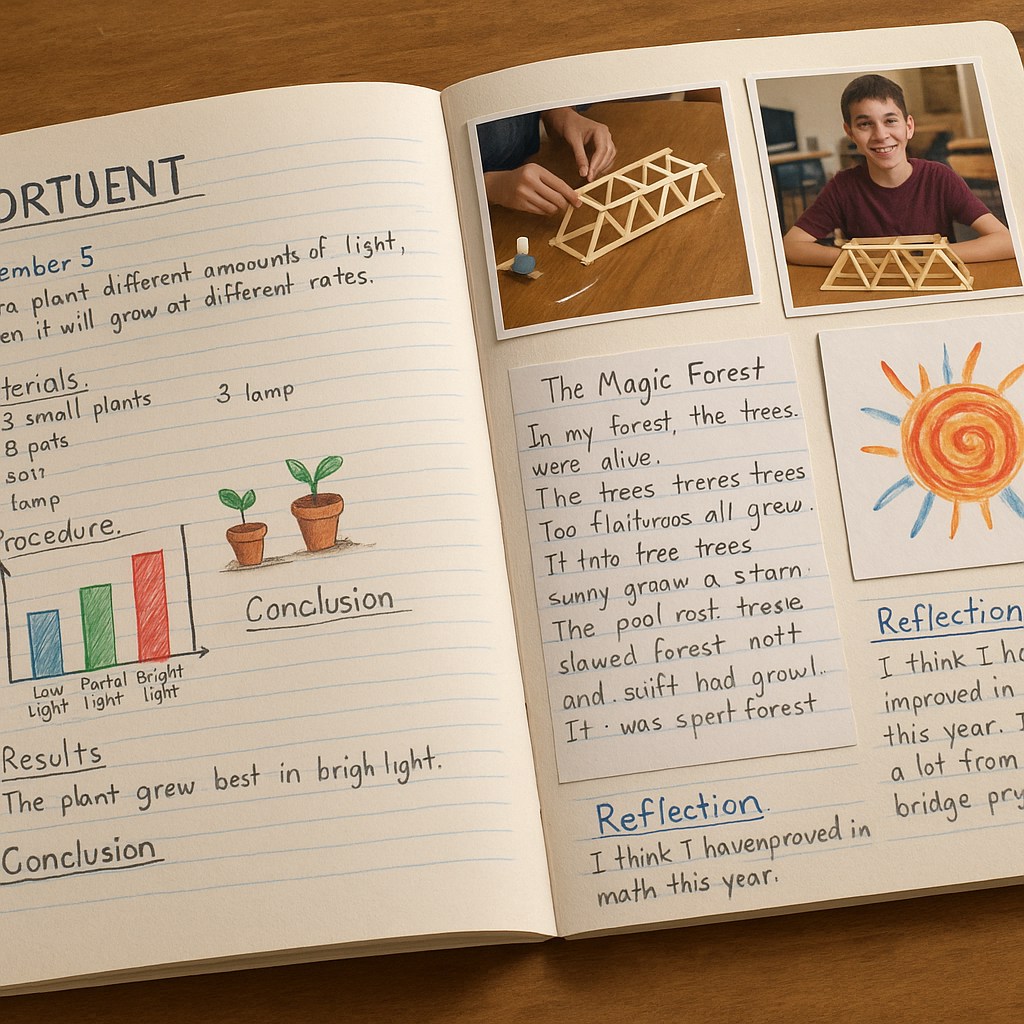 ORTUENT
ember 5
ra plant different amoounts of light,
en it will grow at different rates.
terials.
3 small plants 3 lamp
8 pats
soı?
tamp
Procedure.
Low Light
Partal light
Bright light
Conclusion
Results
The plant grew best in brigh light.
Conclusion
The Magic Forest
In my forest, the trees.
were alive.
The trees treres trees
Too flaituroos all grew.
It tnto free trees
sunny graaw a starn.
The pool rost. tresle
slawed forest nott
and. suift had growl..
It · was spert forest
Reflection.
I think I havenproved in
math this year.
Reflection
I think I ha
improved in
this year. I
a lot from
bridge pry